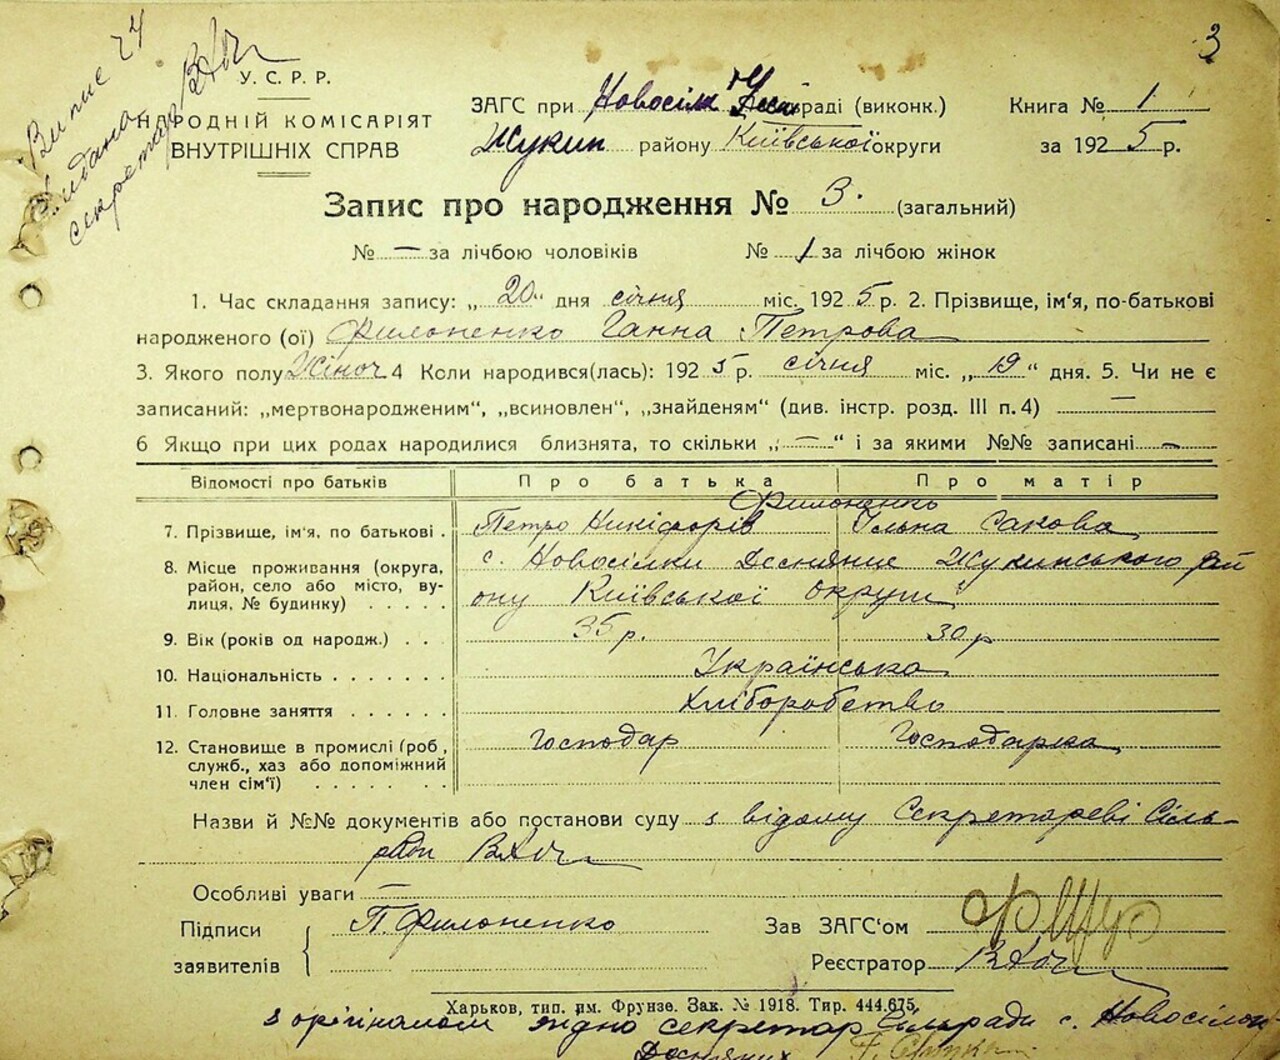 3
Випис 24
видано
секретар
У. С. Р. Р.
НАРОДНІЙ КОМІСАРІЯТ
ВНУТРІШНІХ СПРАВ
ЗАГС при Новосілк раді (виконк.)
Жукин району Київської округи
Книга № 1
за 1925 р.
Запис про народження № 3. (загальний)
№ — за лічбою чоловіків № 1 за лічбою жінок
1. Час складання запису: „20“ дня січня міс. 1925 р. 2. Прізвище, ім'я, по-батькові
народженого (ої) Филоненко Ганна Петрова
3. Якого полу Жіноч 4 Коли народився(лась): 1925 р. січня міс. „19“ дня. 5. Чи не є
записаний: „мертвонародженим“, „всиновлен“, „знайденям“ (див. інстр. розд. III п. 4) —
6 Якщо при цих родах народилися близнята, то скільки „—“ і за якими №№ записані —
Відомості про батьків Про батька Про матір
Филоненко
7. Прізвище, ім'я, по батькові . Петро Никіфорів Ільна Сакова
8. Місце проживання (округа, с. Новосілки Деснянські Жукинського рай
район, село або місто, ву-
лиця, № будинку) . . . . . ону Київської округи
9. Вік (років од народж.) . . . 35 р. 30 р
10. Національність . . . . . . . Українська
11. Головне заняття . . . . . . Хліборобство
12. Становище в промислі (роб., Господар Господарка
служб., хаз або допоміжний
член сім'ї) . . . . . .
Назви й №№ документів або постанови суду з відому Секретареві Сіль-
ради
Особливі уваги —
Підписи П. Филоненко Зав ЗАГС'ом
заявителів Реєстратор
Харьков, тип. им. Фрунзе. Зак. № 1918. Тир. 444.675.
з орігіналом згідно секретар сільради с. Новосілок
Десняних